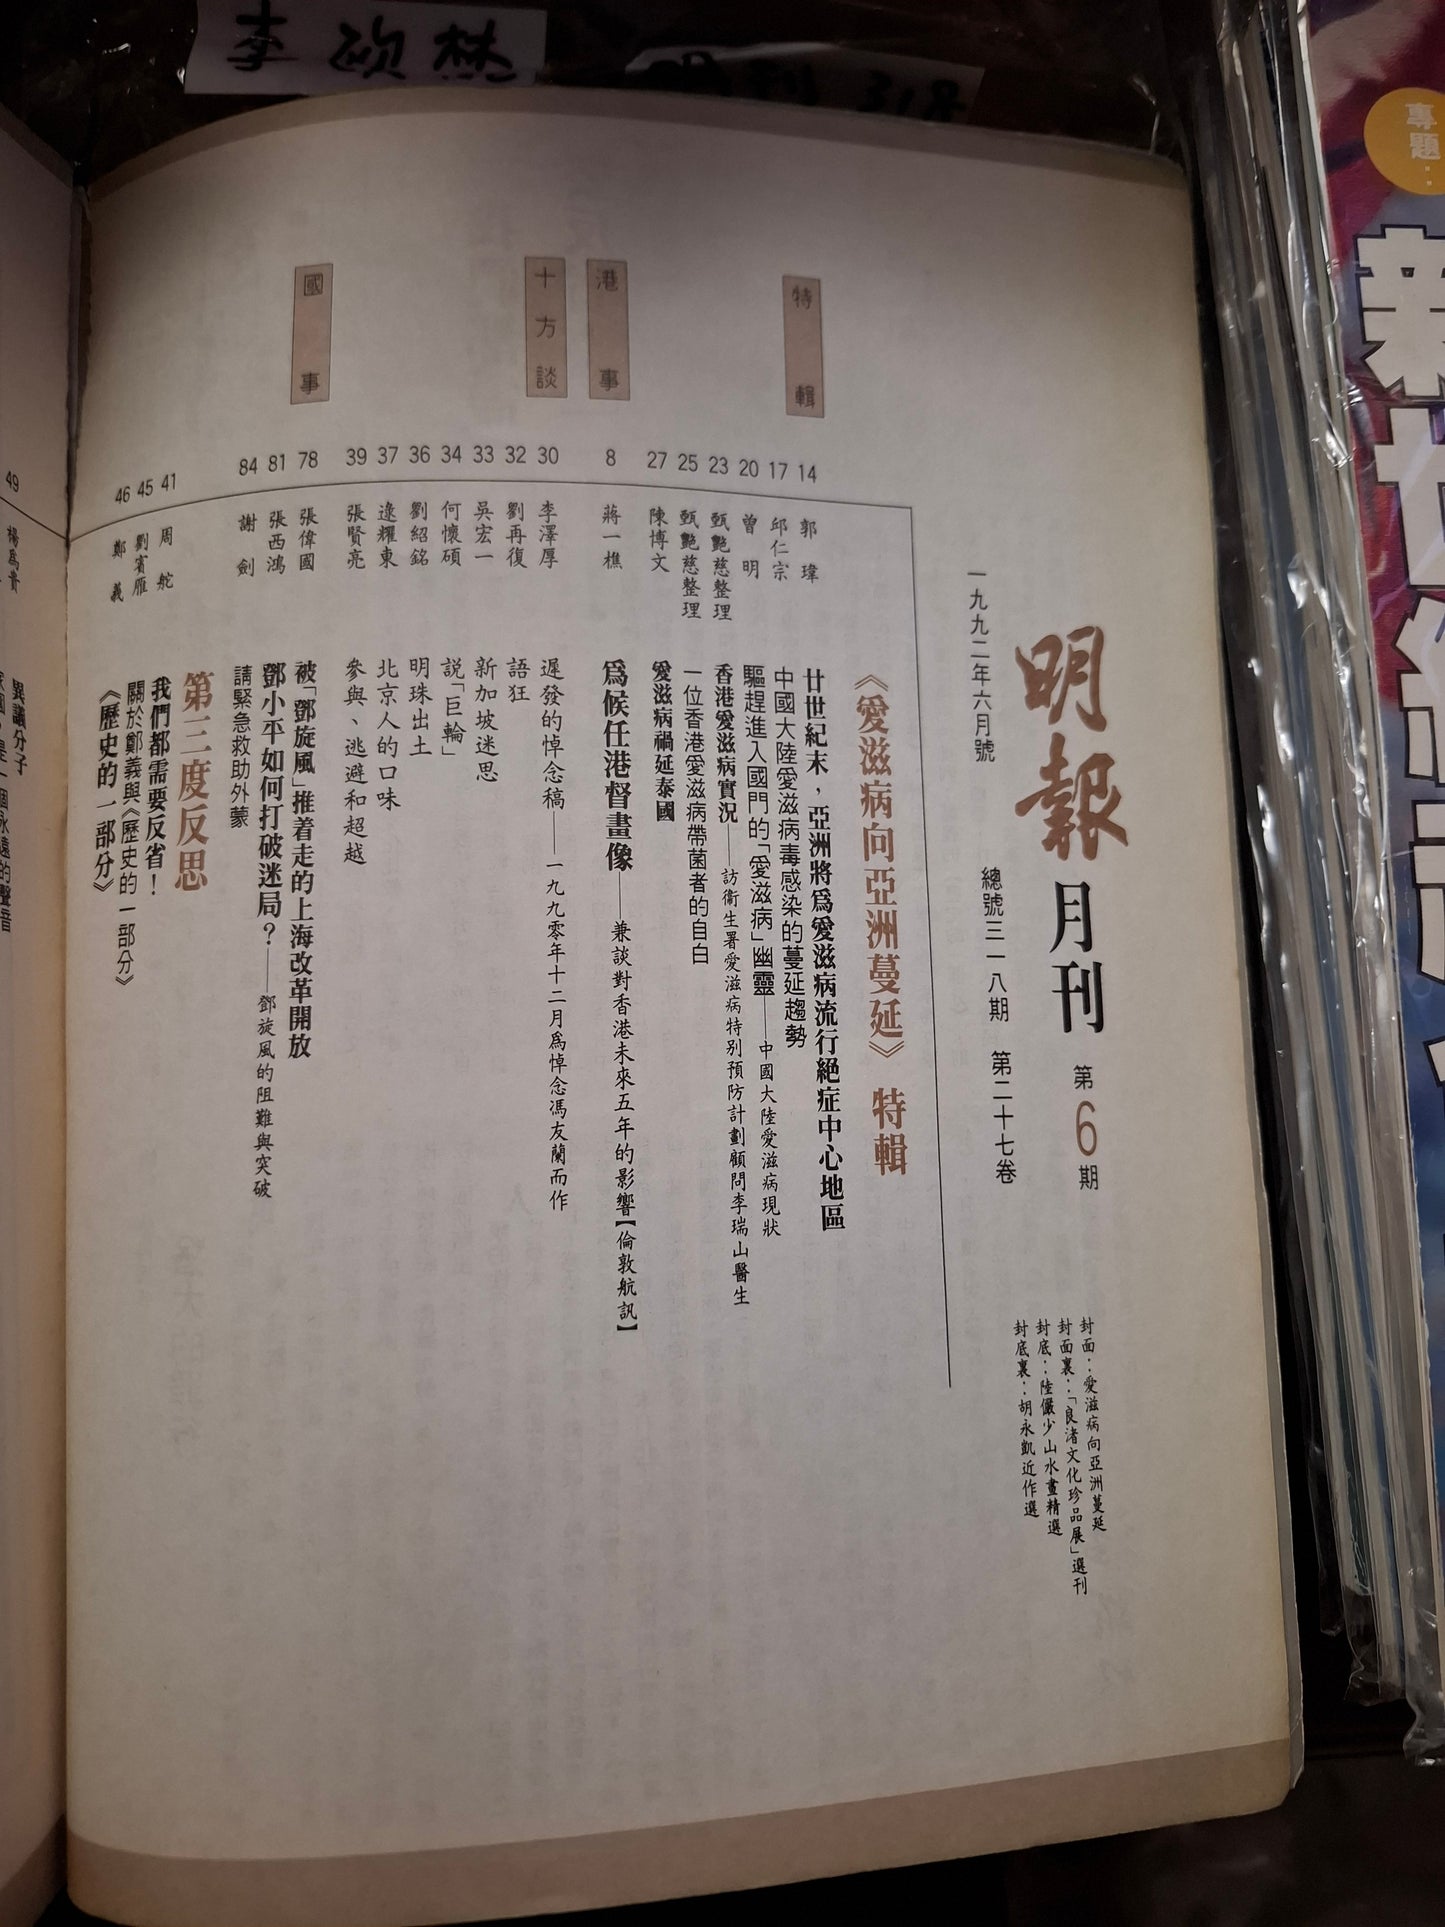 明報月刊 第6期
一九九二年六月號 總號三一八期 第二十七卷
封面：愛滋病向亞洲蔓延
封面裏：「良渚文化珍品展」選刊
封底：陸儼少山水畫精選
封底裏：胡永凱近作選
特輯
《愛滋病向亞洲蔓延》特輯
14 郭瑋 廿世紀末，亞洲將爲愛滋病流行絕症中心地區
17 邱仁宗 中國大陸愛滋病毒感染的蔓延趨勢
20 曾明 驅趕進入國門的「愛滋病」幽靈——中國大陸愛滋病現狀
23 甄艷慈整理 香港愛滋病實況——訪衞生署愛滋病特別預防計劃顧問李瑞山醫生
25 甄艷慈整理 一位香港愛滋病帶菌者的自白
27 陳博文 愛滋病禍延泰國
港事
8 蔣一樵 爲候任港督畫像——兼談對香港未來五年的影響【倫敦航訊】
十方談
30 李澤厚 遲發的悼念稿——一九九零年十二月爲悼念馮友蘭而作
32 劉再復 語狂
33 吳宏一 新加坡迷思
34 何懷碩 説「巨輪」
36 劉紹銘 明珠出土
37 逯耀東 北京人的口味
39 張賢亮 參與、逃避和超越
國事
78 張偉國 被「鄧旋風」推着走的上海改革開放
81 張西鴻 鄧小平如何打破迷局？——鄧旋風的阻難與突破
84 謝劍 請緊急救助外蒙
第三度反思
41 周舵 我們都需要反省！
45 劉賓雁 關於鄭義與《歷史的一部分》
46 鄭義 《歷史的一部分》
49 楊爲貴 異議分子
李
318
專題：